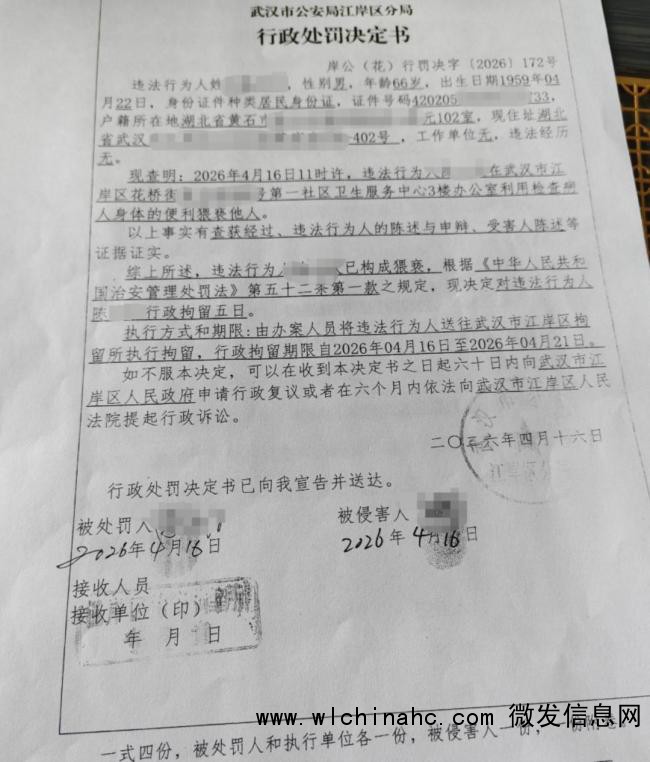 武汉市公安局江岸区分局
行政处罚决定书
岸公（花）行罚决字〔2026〕172号
违法行为人姓 ，性别男，年龄66岁，出生日期1959年04
月22日，身份证件种类居民身份证，证件号码420205 33，
户籍所在地湖北省黄石市 元102室，现住址湖北
省武汉 402号，工作单位无，违法经历
无。
现查明：2026年4月16日11时许，违法行为人 在武汉市江
岸区花桥街 号第一社区卫生服务中心3楼办公室利用检查病
人身体的便利猥亵他人。
以上事实有查获经过、违法行为人的陈述与申辩、受害人陈述等
证据证实。
综上所述，违法行为人 已构成猥亵，根据《中华人民共和
国治安管理处罚法》第五十二条第一款之规定，现决定对违法行为人
陈 行政拘留五日。
执行方式和期限：由办案人员将违法行为人送往武汉市江岸区拘
留所执行拘留，行政拘留期限自2026年04月16日至2026年04月21日。
如不服本决定，可以在收到本决定书之日起六十日内向武汉市江
岸区人民政府申请行政复议或者在六个月内依法向武汉市江岸区人民
法院提起行政诉讼。
二〇二六年四月十六日
江岸区分局
行政处罚决定书已向我宣告并送达。
被处罚人 被侵害人
2026年4月16日 2026年4月16日
接收人员
接收单位（印）
年 月 日
www.wlchinahc.com 微发信息网
一式四份，被处罚人和执行单位各一份，被侵害人一份，一份附卷。